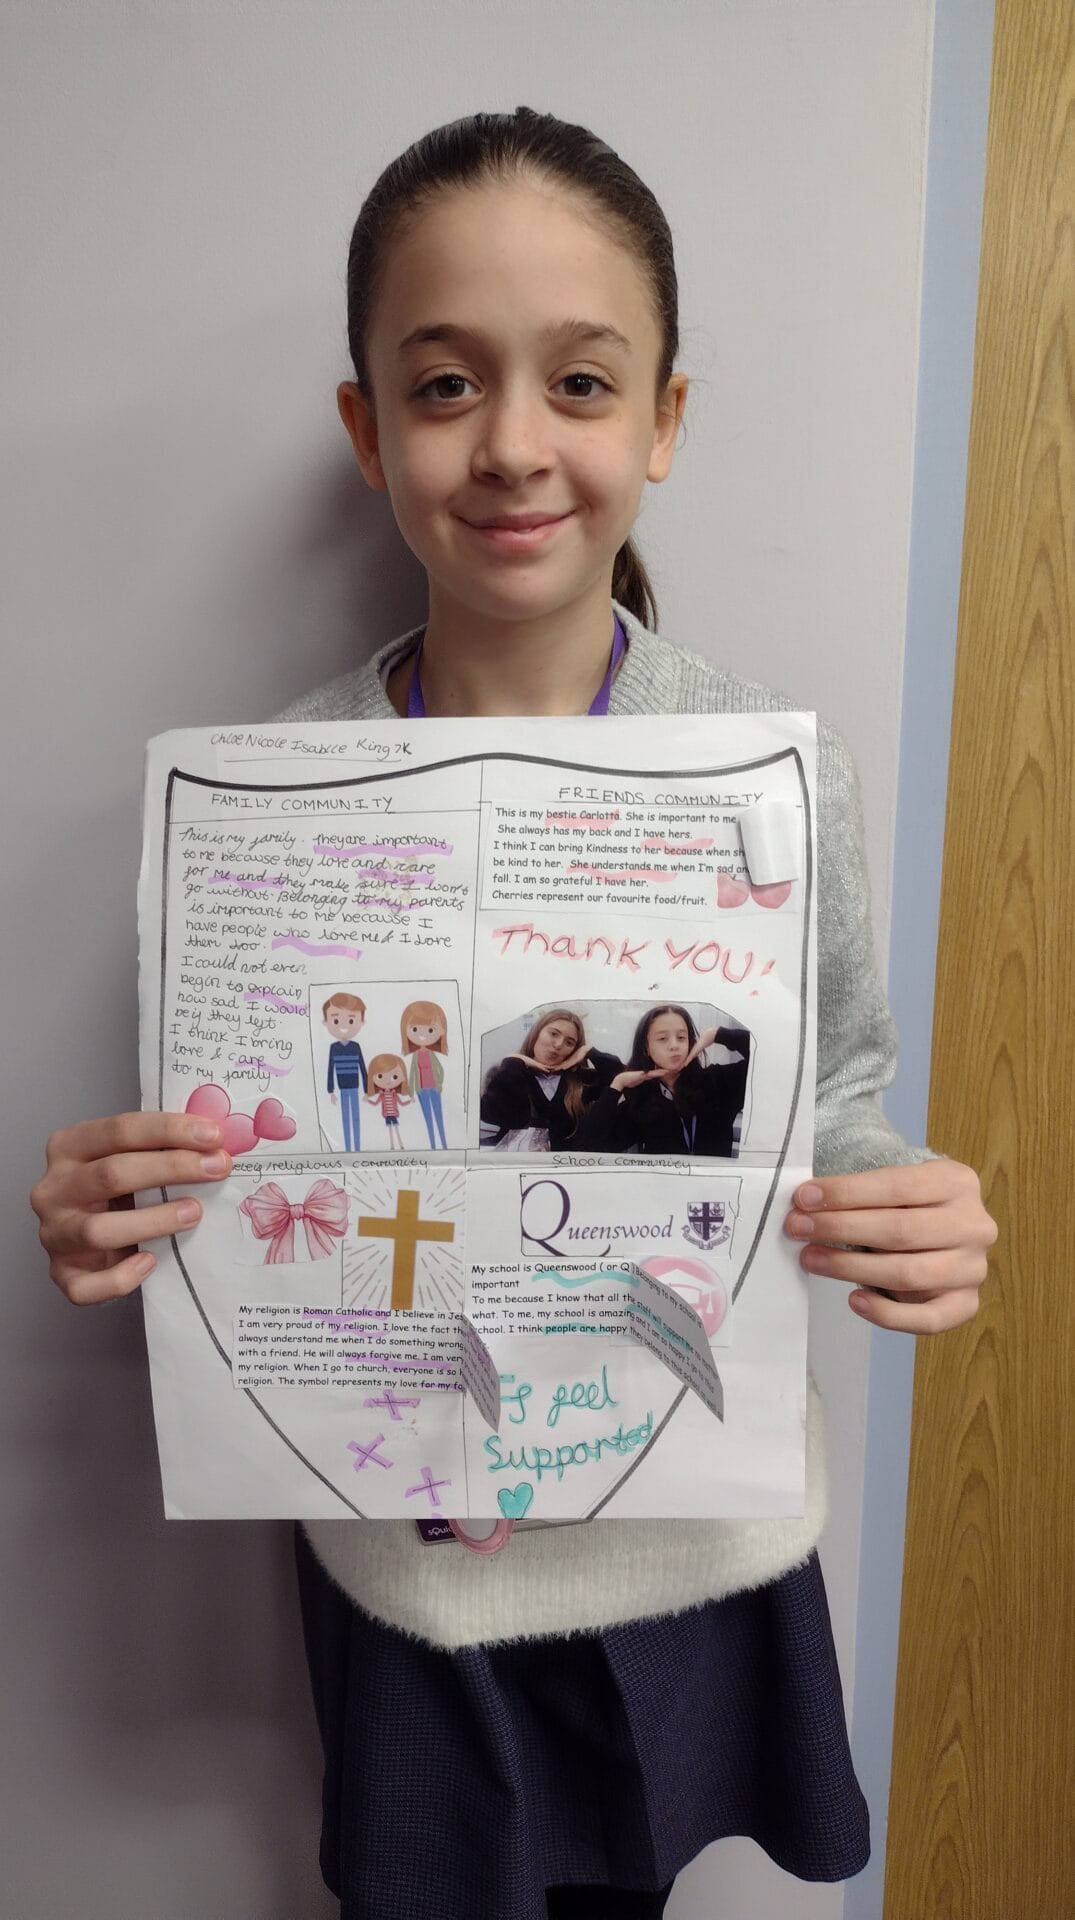 Chloe Nicole IsabLCe King 7K
FAMILY COMMUNITY
This is my family. They are important
to me because they love and care
for me and they make sure I won't
go without. Belonging to my parents
is important to me because I
have people who love me & I love
them too.
I could not even
begin to explain
how sad I would
be if they left.
I think I bring
love & care
to my family.
FRIENDS COMMUNITY
This is my bestie Carlotta. She is important to me
She always has my back and I have hers.
I think I can bring Kindness to her because when
be kind to her. She understands me when I'm sad
fall. I am so grateful I have her.
Cherries represent our favourite food/fruit.
THANK YOU!
/religious community
My religion is Roman Catholic and I believe in
I am very proud of my religion. I love the fact
always understand me when I do something wrong
with a friend. He will always forgive me. I am
my religion. When I go to church, everyone is so
religion. The symbol represents my love for my
School community
Queenswood
My school is Queenswood ( or Q )
important
To me because I know that all the staff will support me no matter
what. To me, my school is amazing and I am so happy I
school. I think people are happy they belong to their school
Belonging to my school
I feel
Supported